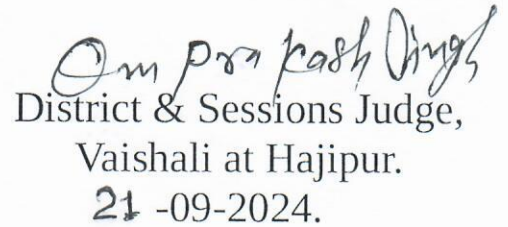 Om Prakash Singh
District & Sessions Judge,
Vaishali at Hajipur.
21 -09-2024.